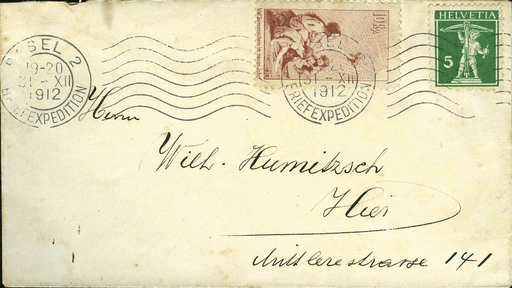 BASEL 2
19-20
31-XII
1912
BRIEFEXPEDITION
BASEL 2
31-XII
1912
BRIEFEXPEDITION
HELVETIA
5
Herrn
Wilh. Humitzsch
Hier
Mittlerestrasse 141